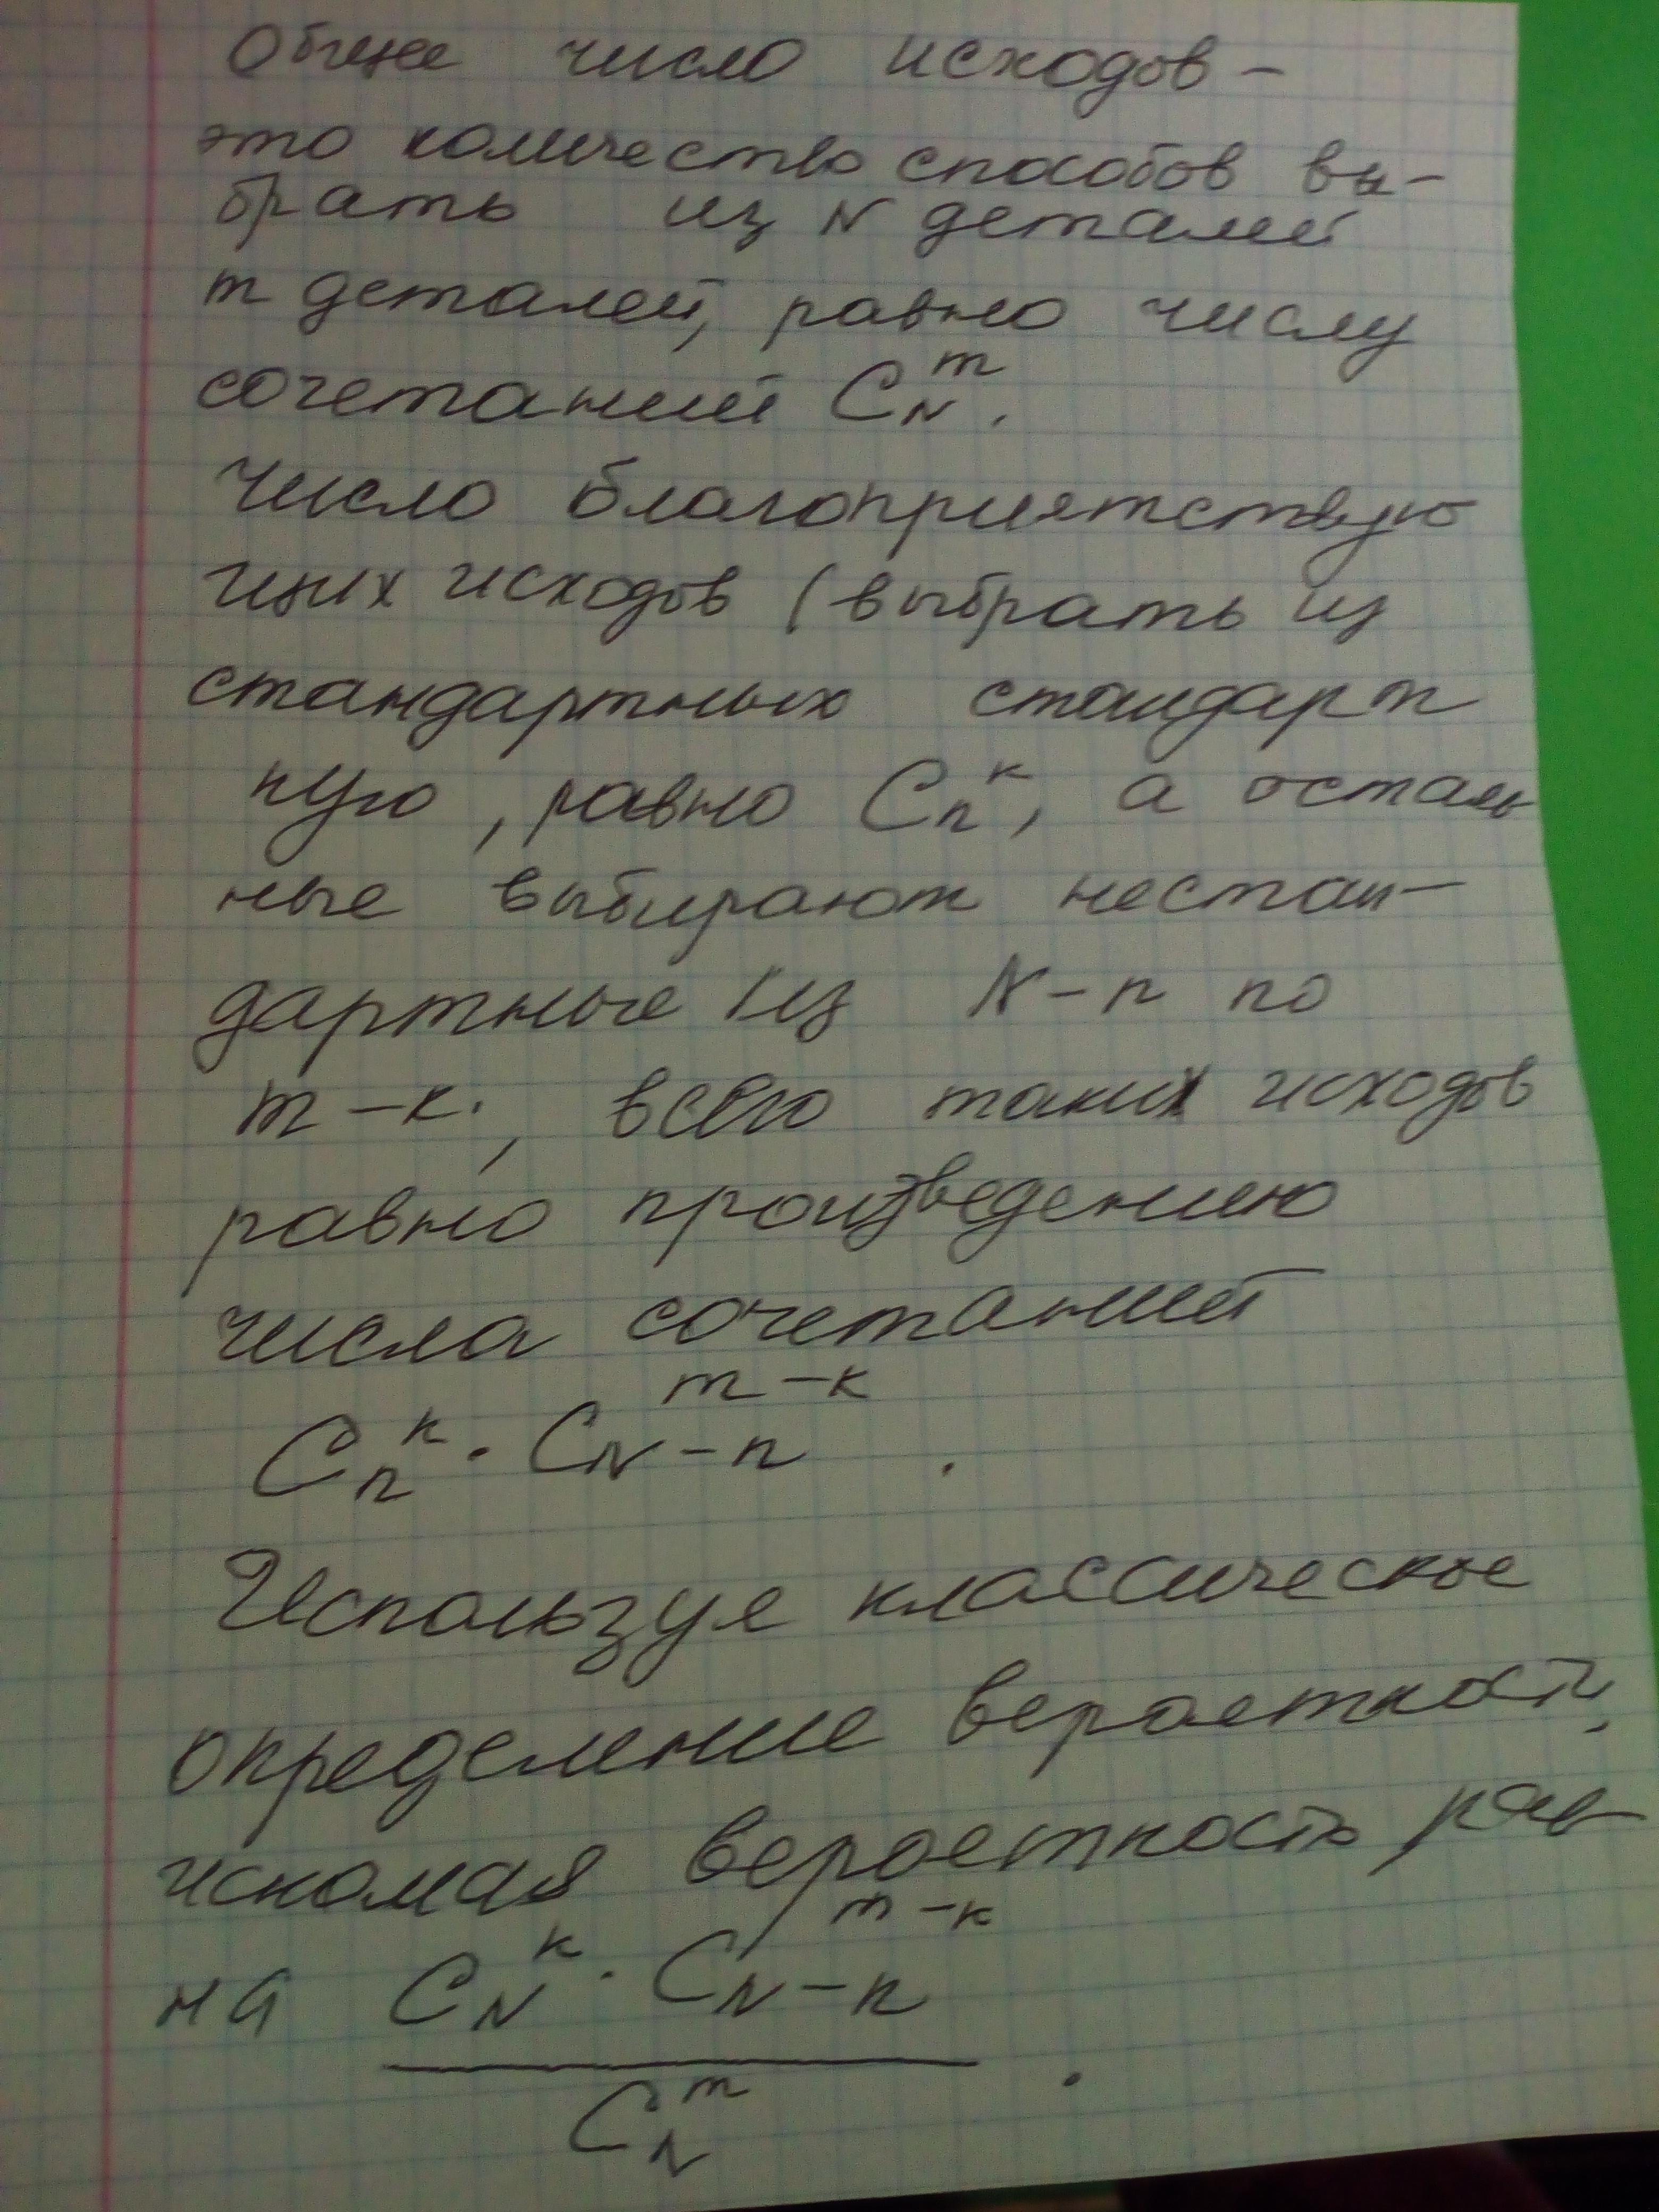 Общее число исходов –
это количество способов вы-
брать из N деталей
m деталей, равно числу
сочетаний C_N^m.
Число благоприятствую
щих исходов (выбрать из
стандартных стандарт
ную, равно C_n^k, а осталь
ные выбирают нестан-
дартные из N-n по
m-k, всего таких исходов
равно произведению
числа сочетаний
C_n^k · C_{N-n}^{m-k}.
Используя классическое
определение вероятности,
искомая вероятность рав
на \frac{C_N^k · C_{N-n}^{m-k}}{C_N^m}.